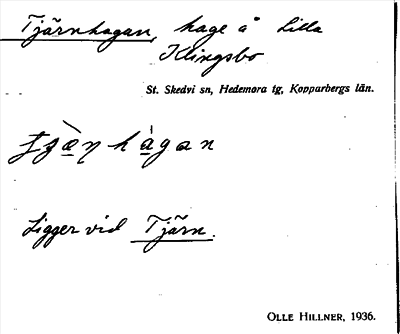 Tjärnhagan, hage å Lilla
Klingsbo
St. Skedvi sn, Hedemora tg, Kopparbergs län.
Ligger vid Tjärn.
OLLE HILLNER, 1936.